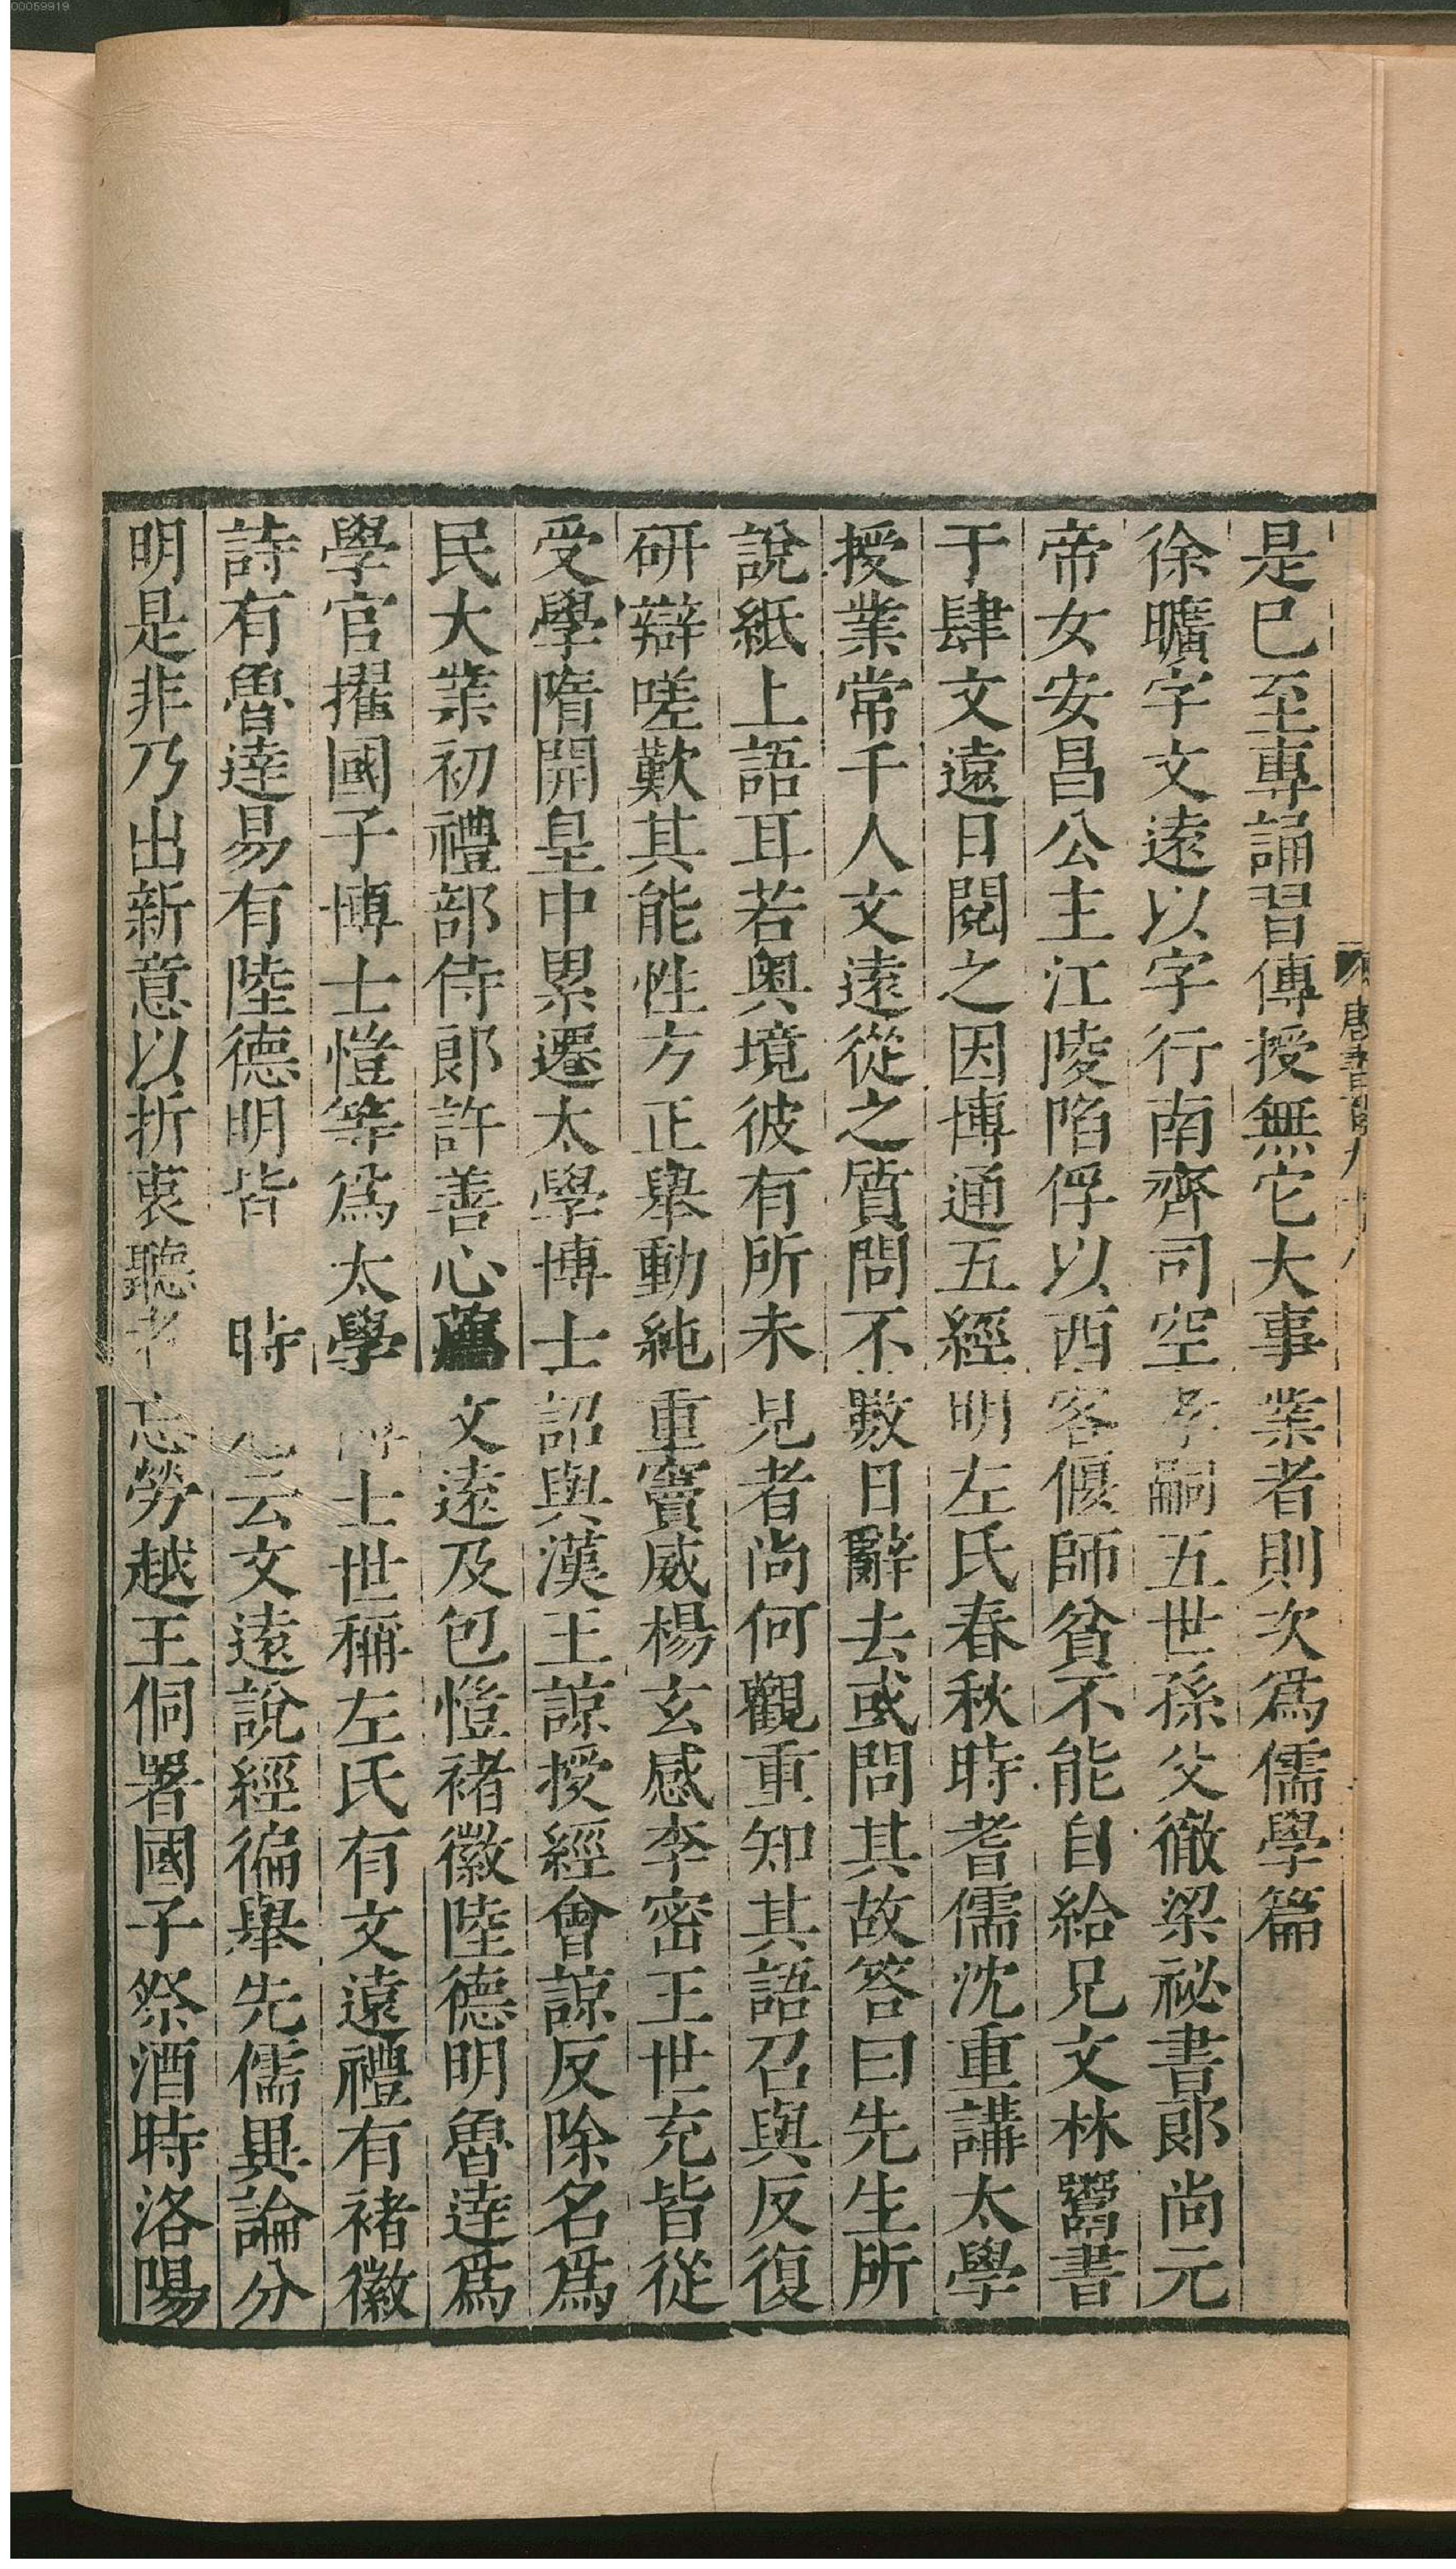 00059919
唐書百九十八
是已至專誦習傳授無它大事業者則次爲儒學篇
徐曠字文遠以字行南齊司空孝嗣五世孫父徹梁祕書郎尚元
帝女安昌公主江陵陷俘以西客偃師貧不能自給兄文林鬻書
于肆文遠日閱之因博通五經明左氏春秋時耆儒沈重講太學
授業常千人文遠從之質問不數日辭去或問其故答曰先生所
說紙上語耳若奧境彼有所未見者尚何觀重知其語召與反復
研辯嗟歎其能性方正舉動純重竇威楊玄感李密王世充皆從
受學隋開皇中累遷太學博士詔與漢王諒授經會諒反除名爲
民大業初禮部侍郎許善心薦文遠及包愷褚徽陸德明魯達爲
學官擢國子博士愷等爲太學士世稱左氏有文遠禮有褚徽
詩有魯達易有陸德明皆時云文遠說經徧舉先儒異論分
明是非乃出新意以折衷聽者忘勞越王侗署國子祭酒時洛陽